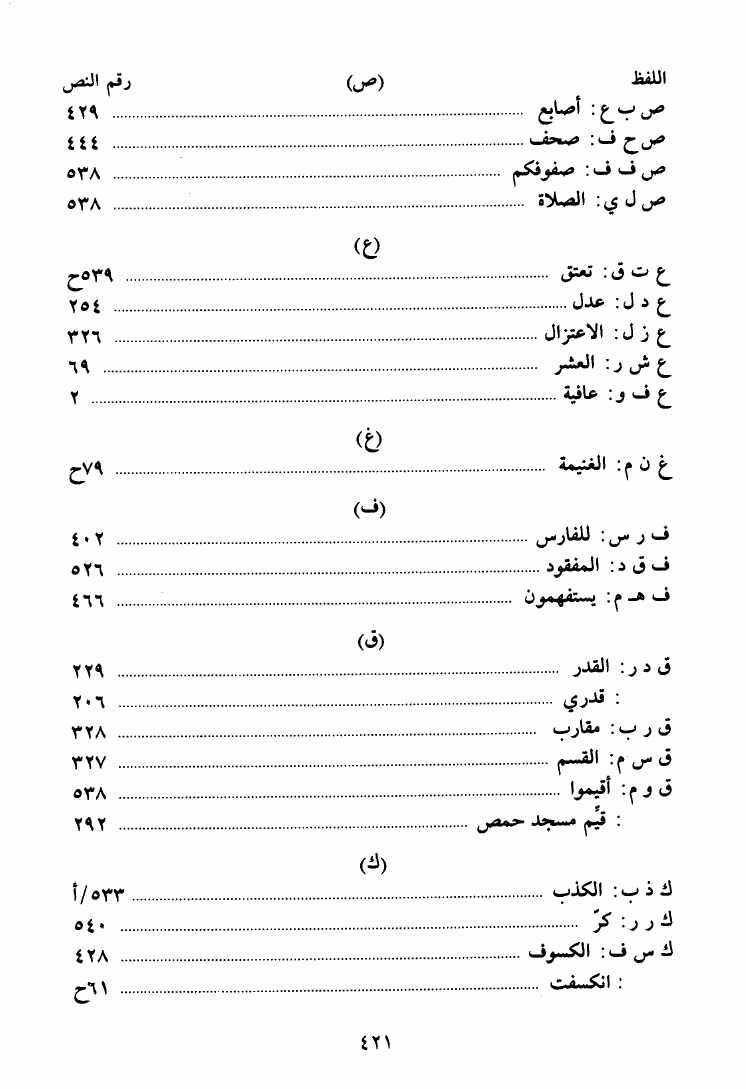 اللفظ (ص) رقم النص
ص ب ع: أصابع ٤٢٩
ص ح ف: صحف ٤٤٤
ص ف ف: صفوفكم ٥٣٨
ص ل ي: الصلاة ٥٣٨
(ع)
ع ت ق: تعتق ٥٣٩ح
ع د ل: عدل ٢٥٤
ع ز ل: الاعتزال ٣٢٦
ع ش ر: العشر ٦٩
ع ف و: عافية ٢
(غ)
غ ن م: الغنيمة ٧٩ح
(ف)
ف ر س: للفارس ٤٠٢
ف ق د: المفقود ٥٢٦
ف هـ م: يستفهمون ٤٦٦
(ق)
ق د ر: القدر ٢٢٩
: قدري ٢٠٦
ق ر ب: مقارب ٣٢٨
ق س م: القسم ٣٢٧
ق و م: أقيموا ٥٣٨
: قيِّم مسجد حمص ٢٩٢
(ك)
ك ذ ب: الكذب ٥٣٣/أ
ك ر ر: كرّ ٥٤٠
ك س ف: الكسوف ٤٢٨
: انكسفت ٦١ح
٤٢١